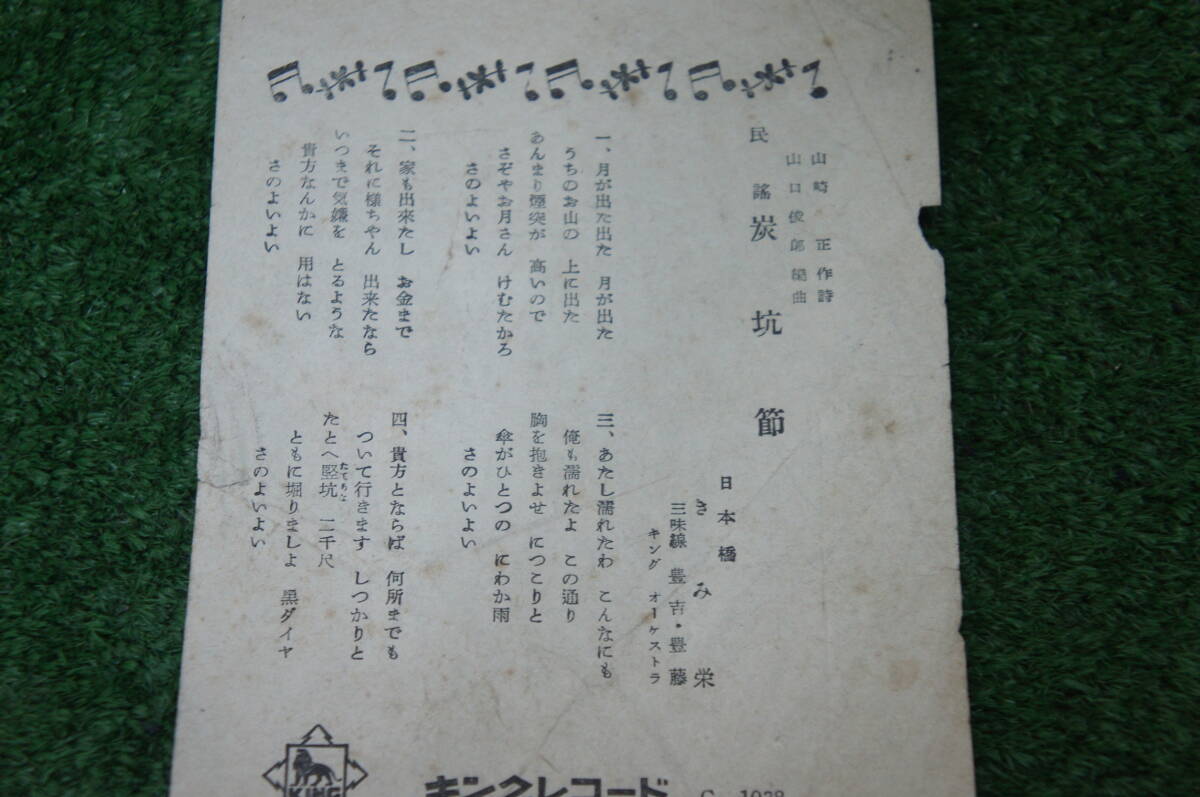 山崎正作詩
山口俊郎編曲
民謠 炭坑節
日本橋 きみ栄
三味線 豊吉・豊藤
キング オーケストラ
一、月が出た出た 月が出た
うちのお山の 上に出た
あんまり煙突が 高いので
さぞやお月さん けむたかろ
さのよいよい
二、家も出来たし お金まで
それに様ちやん 出来たなら
いつまで気嫌を とるような
貴方なんかに 用はない
さのよいよい
三、あたし濡れたわ こんなにも
俺も濡れたよ この通り
胸を抱きよせ につこりと
傘がひとつの にわか雨
さのよいよい
四、貴方とならば 何所までも
ついて行きます しつかりと
たとへ竪坑 二千尺
ともに堀りましよ 黒ダイヤ
さのよいよい
KING
キングレコード